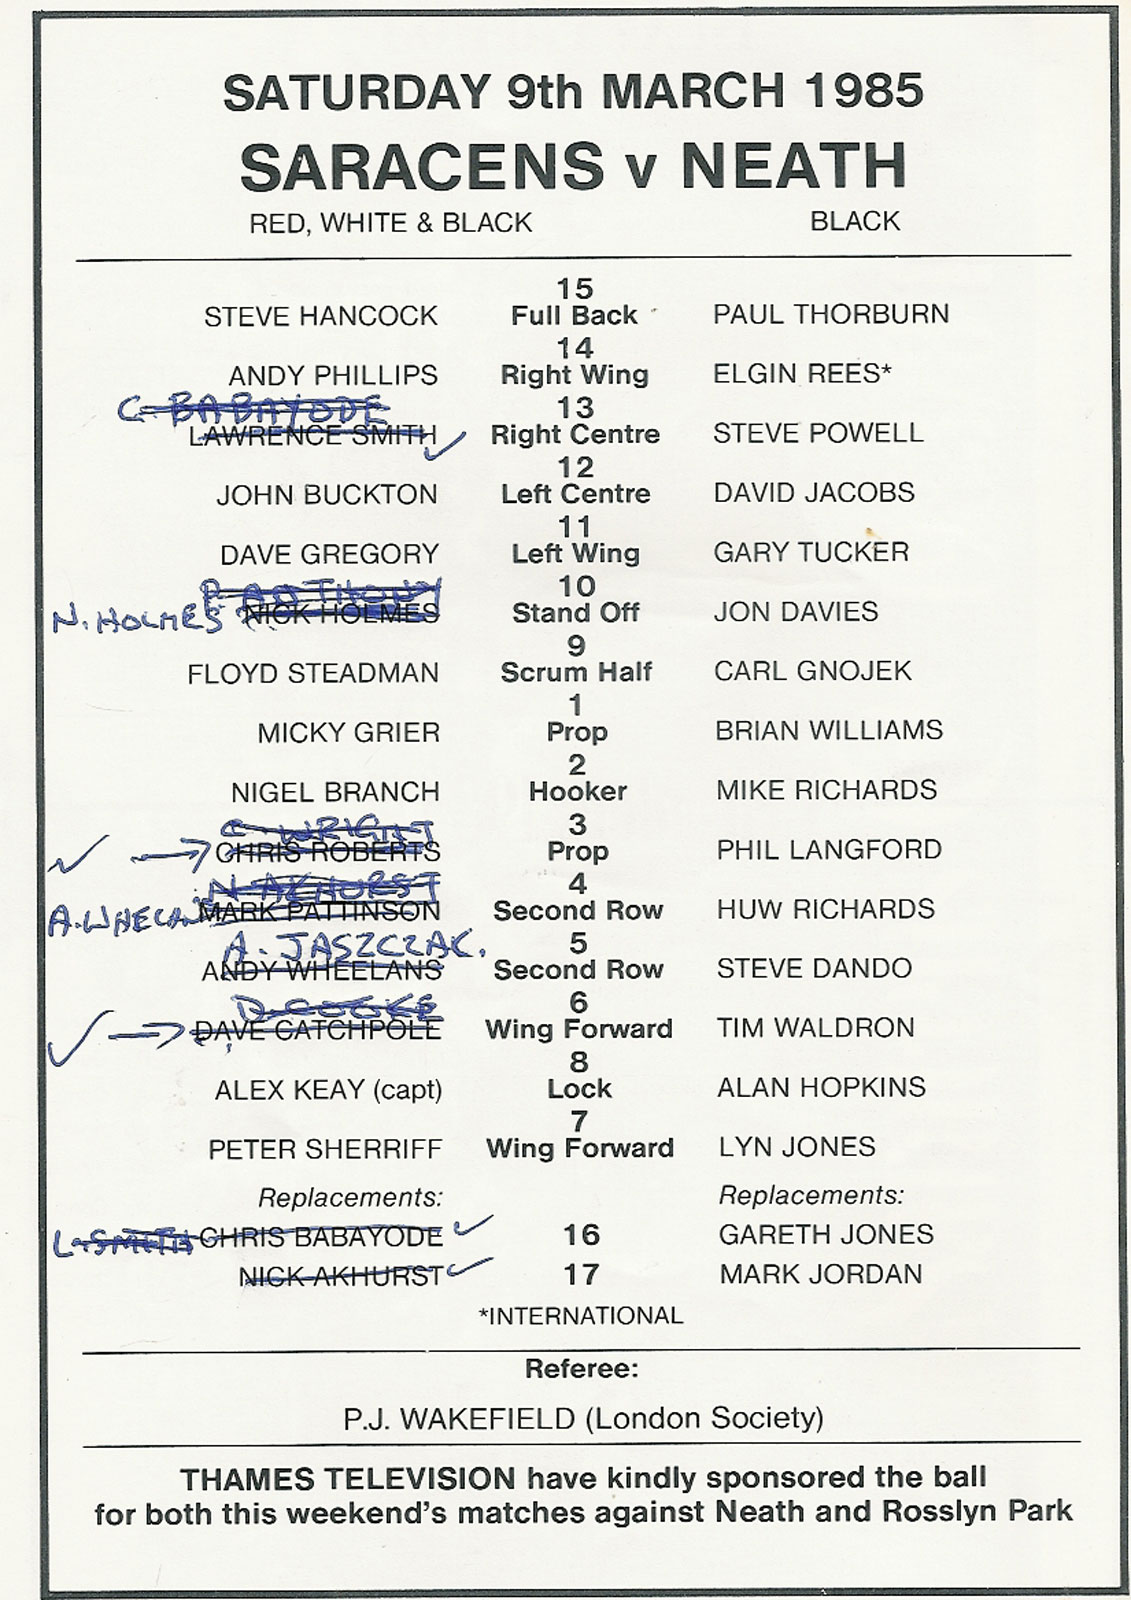 SATURDAY 9th MARCH 1985
SARACENS v NEATH
RED, WHITE & BLACK BLACK
15
STEVE HANCOCK Full Back PAUL THORBURN
14
ANDY PHILLIPS Right Wing ELGIN REES*
C. BABAYODE 13
LAWRENCE SMITH ✓ Right Centre STEVE POWELL
12
JOHN BUCKTON Left Centre DAVID JACOBS
11
DAVE GREGORY Left Wing GARY TUCKER
10
N. HOLMES NICK HOLMES Stand Off JON DAVIES
9
FLOYD STEADMAN Scrum Half CARL GNOJEK
1
MICKY GRIER Prop BRIAN WILLIAMS
2
NIGEL BRANCH Hooker MIKE RICHARDS
C. WRIGHT 3
✓ → CHRIS ROBERTS Prop PHIL LANGFORD
N. AKHURST 4
A. WHELAN MARK PATTINSON Second Row HUW RICHARDS
A. JASZCZAK. 5
ANDY WHEELANS Second Row STEVE DANDO
D. COOKE 6
✓ → DAVE CATCHPOLE Wing Forward TIM WALDRON
8
ALEX KEAY (capt) Lock ALAN HOPKINS
7
PETER SHERRIFF Wing Forward LYN JONES
Replacements: Replacements:
L. SMITH CHRIS BABAYODE ✓ 16 GARETH JONES
NICK AKHURST ✓ 17 MARK JORDAN
*INTERNATIONAL
Referee:
P.J. WAKEFIELD (London Society)
THAMES TELEVISION have kindly sponsored the ball
for both this weekend's matches against Neath and Rosslyn Park